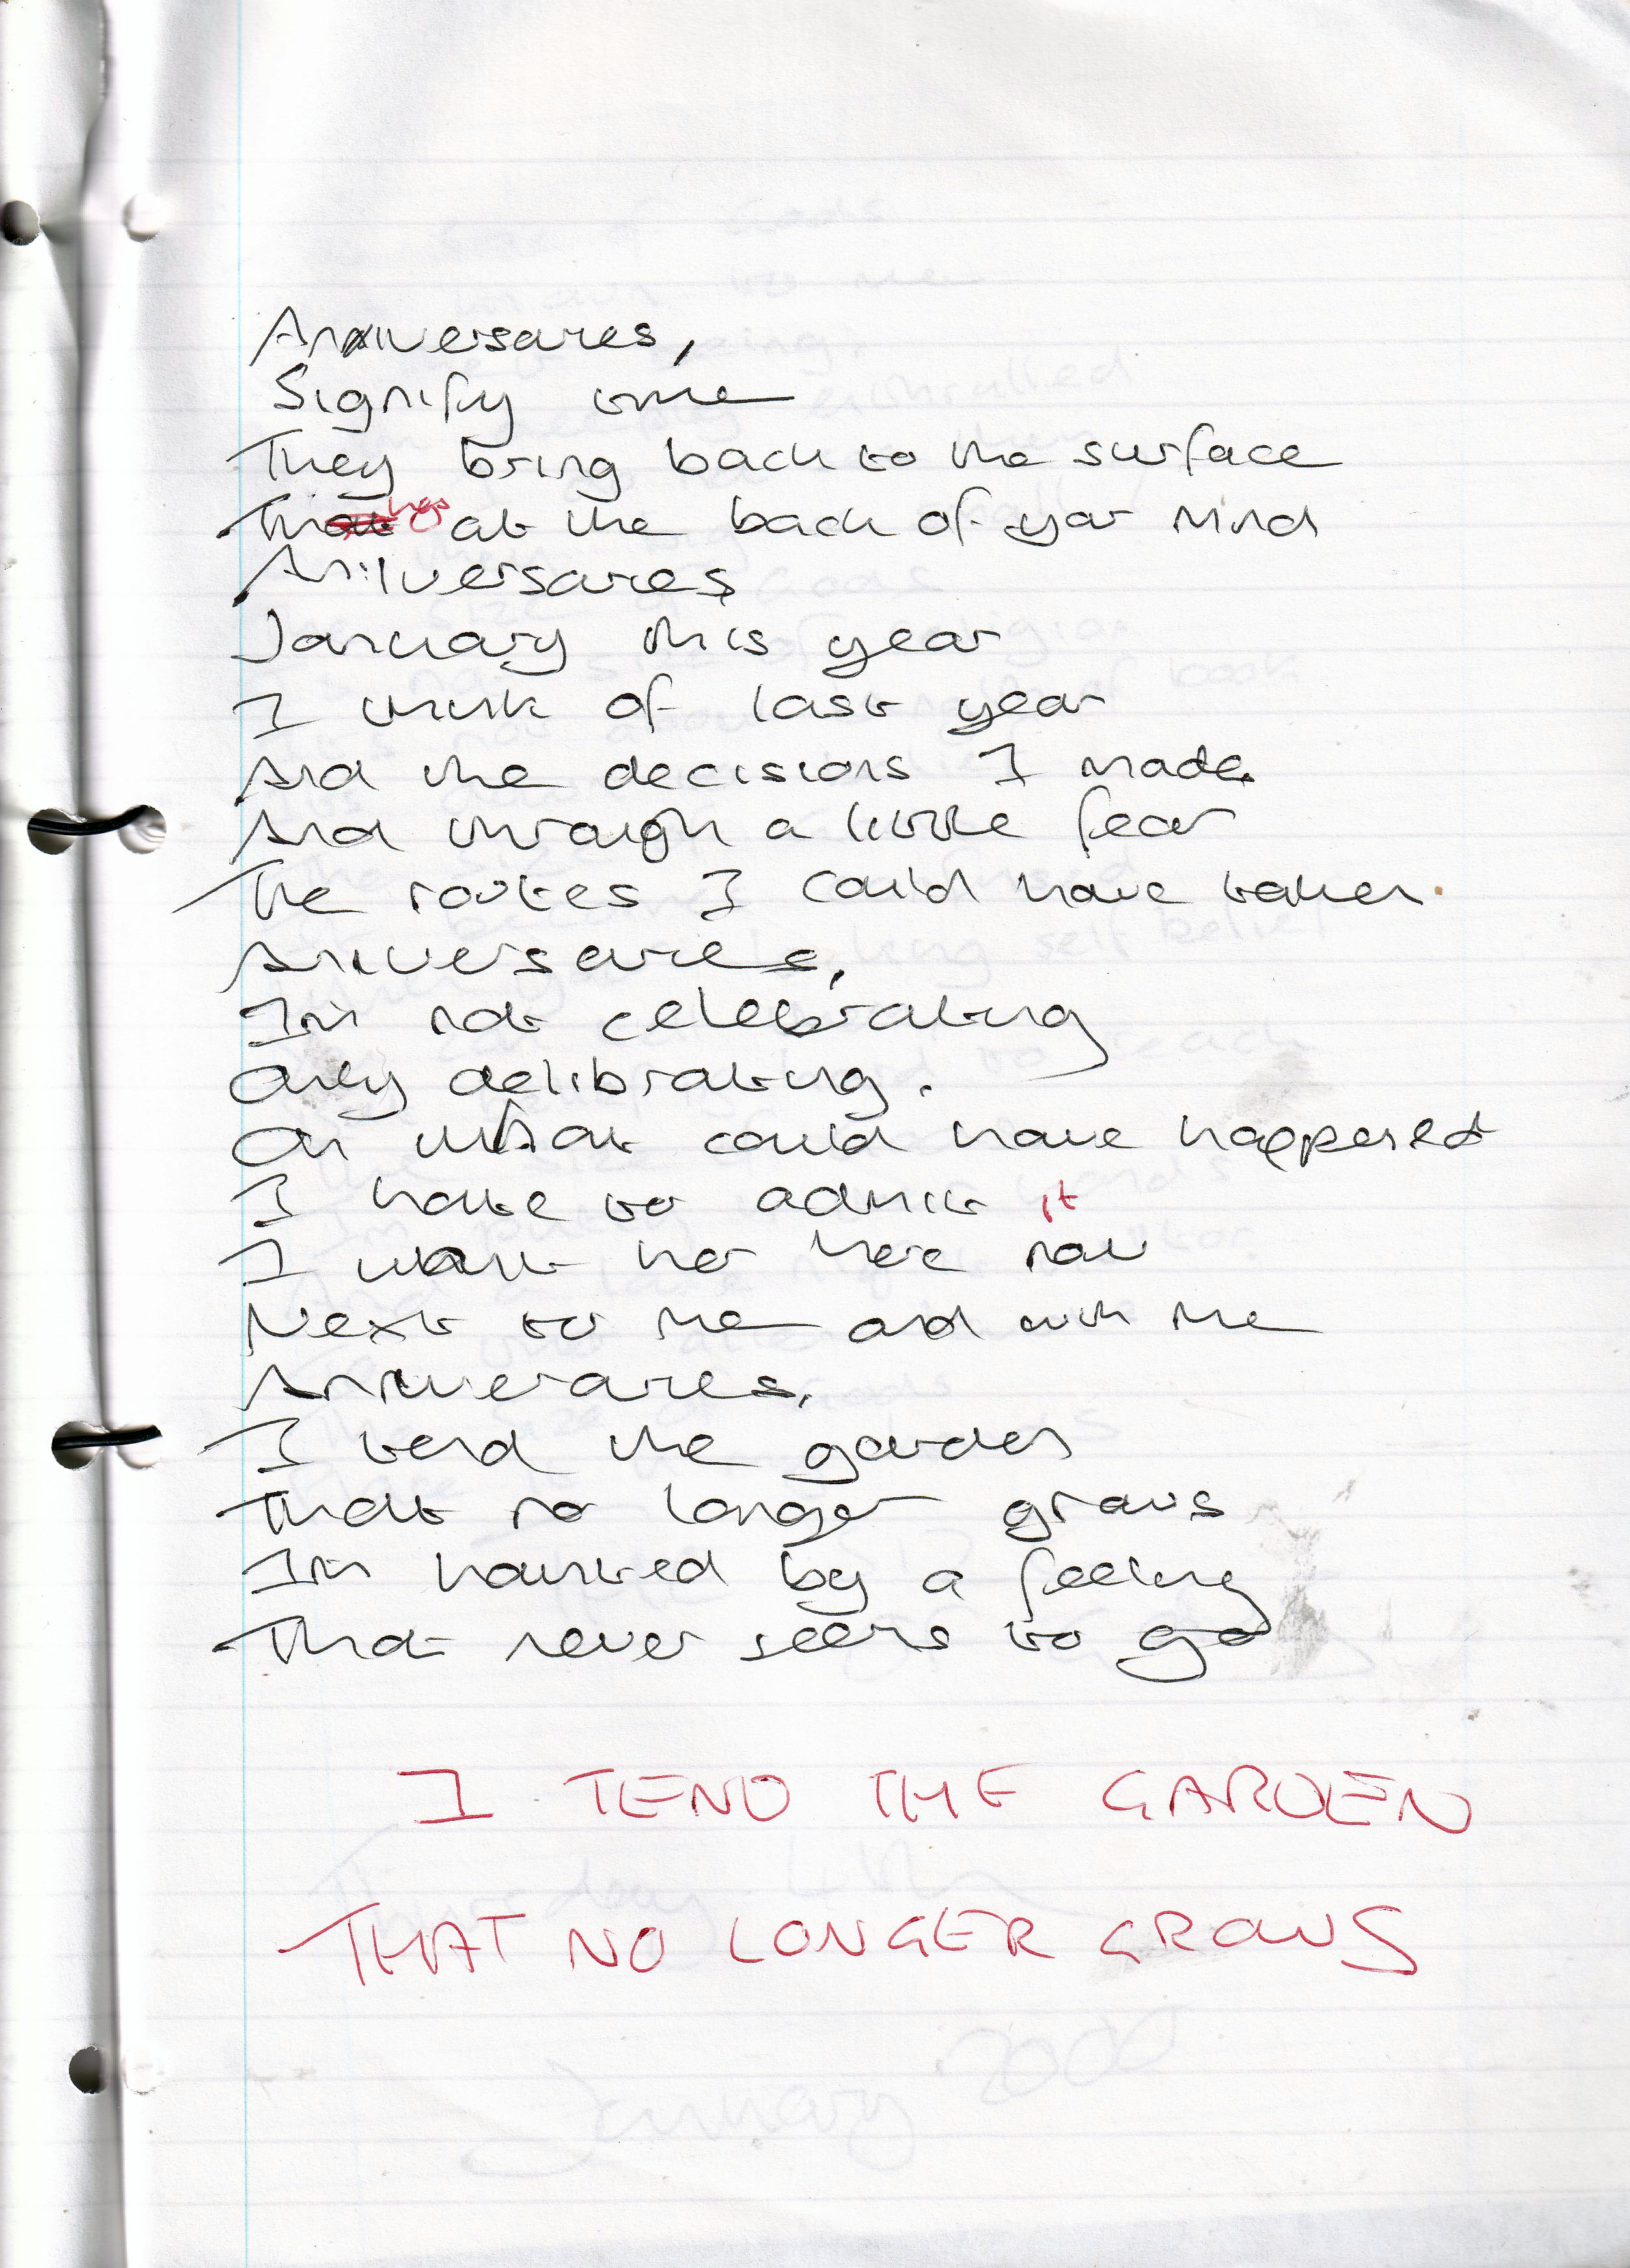 Aniversares,
Signify time
They bring back to the surface
Things at the back of your mind
Aniversares
January this year
I think of last year
And the decisions I made.
And through a little fear
The routes I could have taken.
Aniversares,
I'm not celebrating
Only delibrating.
On what could have happened
I hate to admit it
I want her here now
Next to me and with me
Aniverares,
I tend the garden
That no longer grows
I'm haunted by a feeling
That never seems to go
I TEND THE GARDEN
THAT NO LONGER GROWS
January 2000